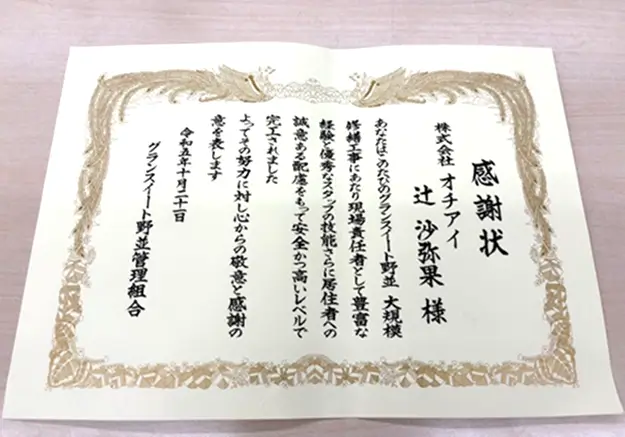 感謝状
株式会社 オチアイ
辻 沙弥果 様
あなたはこのたびのグランスイート野並 大規模
修繕工事にあたり現場責任者として豊富な
経験と優秀なスタッフの技能さらに居住者への
誠意ある配慮をもって安全かつ高いレベルで
完工されました
よってその努力に対し心からの敬意と感謝の
意を表します
令和五年十月二十一日
グランスイート野並管理組合